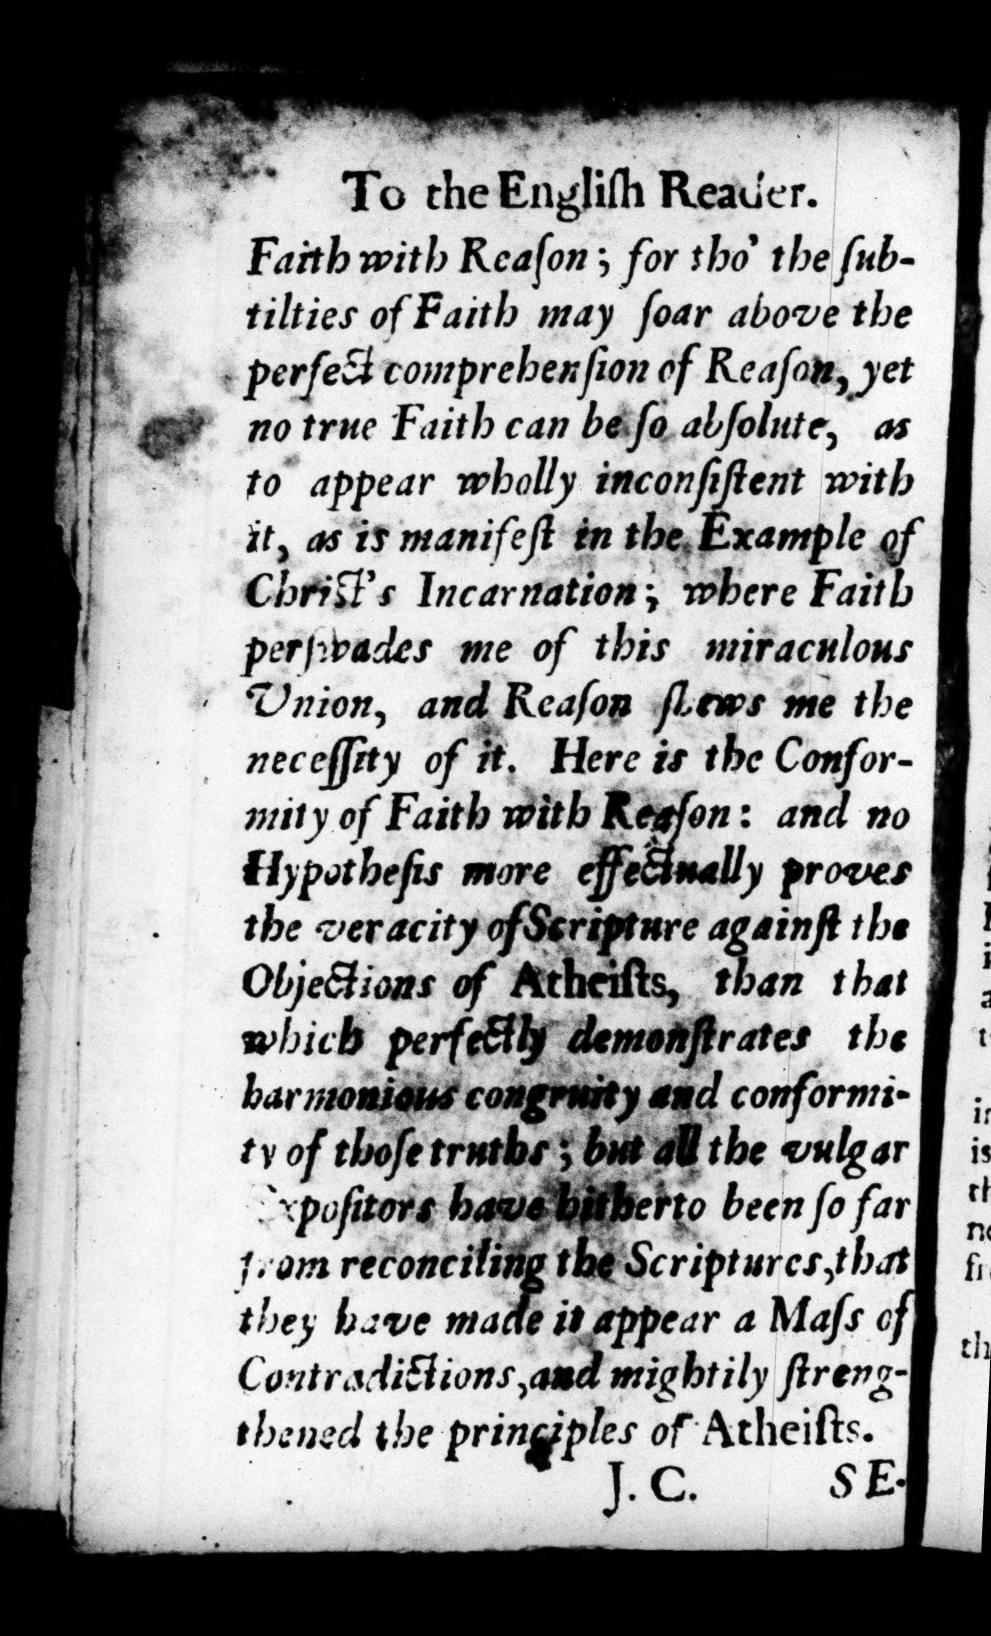 To the Engliſh Reader.
Faith with Reaſon; for tho' the ſub-
tilties of Faith may ſoar above the
perfect comprehenſion of Reaſon, yet
no true Faith can be ſo abſolute, as
to appear wholly inconſiſtent with
it, as is manifeſt in the Example of
Chriſt's Incarnation; where Faith
perſwades me of this miraculous
Vnion, and Reaſon ſhews me the
neceſſity of it. Here is the Confor-
mity of Faith with Reaſon: and no
Hypotheſis more effectually proves
the veracity of Scripture againſt the
Objections of Atheiſts, than that
which perfectly demonſtrates the
harmonious congruity and conformi-
ty of thoſe truths; but all the vulgar
Expoſitors have hitherto been ſo far
from reconciling the Scriptures, that
they have made it appear a Maſs of
Contradictions, and mightily ſtreng-
thened the principles of Atheiſts.
J. C. SE-